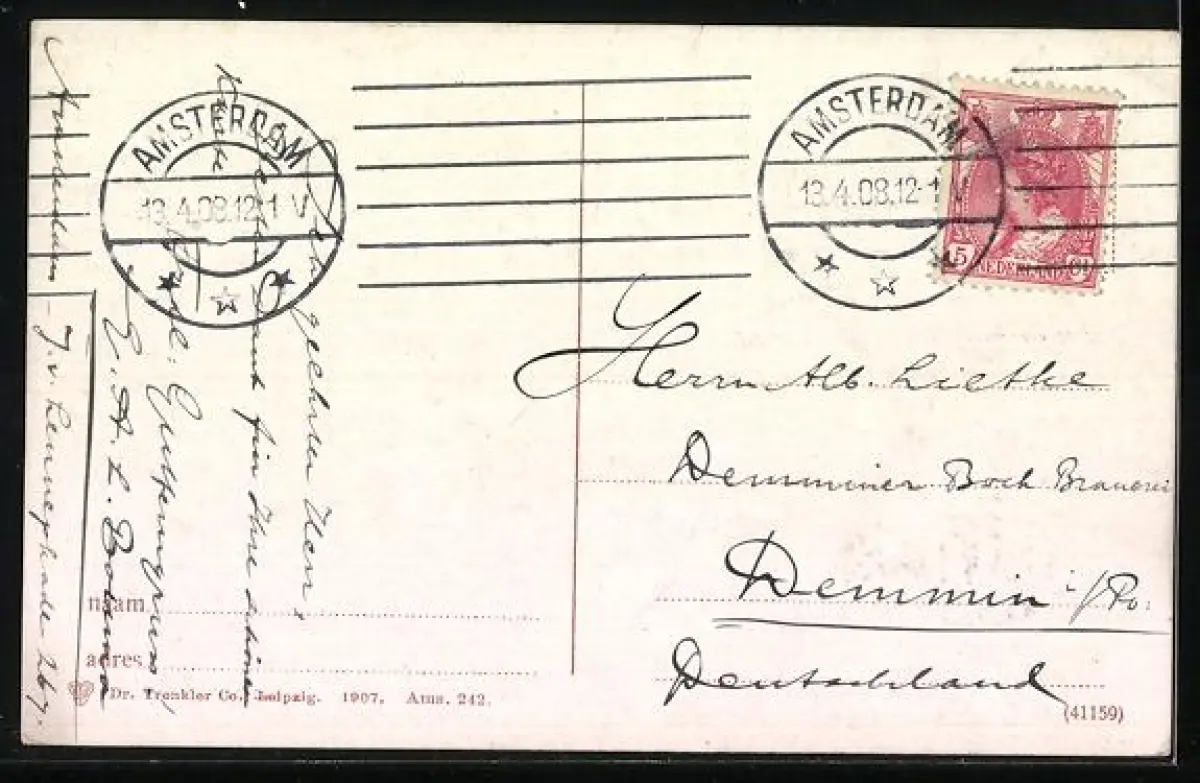 Sehr geehrter Herr,
Dank für Ihre schöne
Karte
E. A. L. Bolema
Amsterdam - J. v. Lennepkade 267.
AMSTERDAM
13.4.08.12-1 V
AMSTERDAM
13.4.08.12-1 V
5 NEDERLAND Ct
Herrn Alb. Liethe
Demminer Bock Brauerei
Demmin i/Po.
Deutschland
naam
adres
Dr. Trenkler Co., Leipzig. 1907. Ams. 242.
(41159)